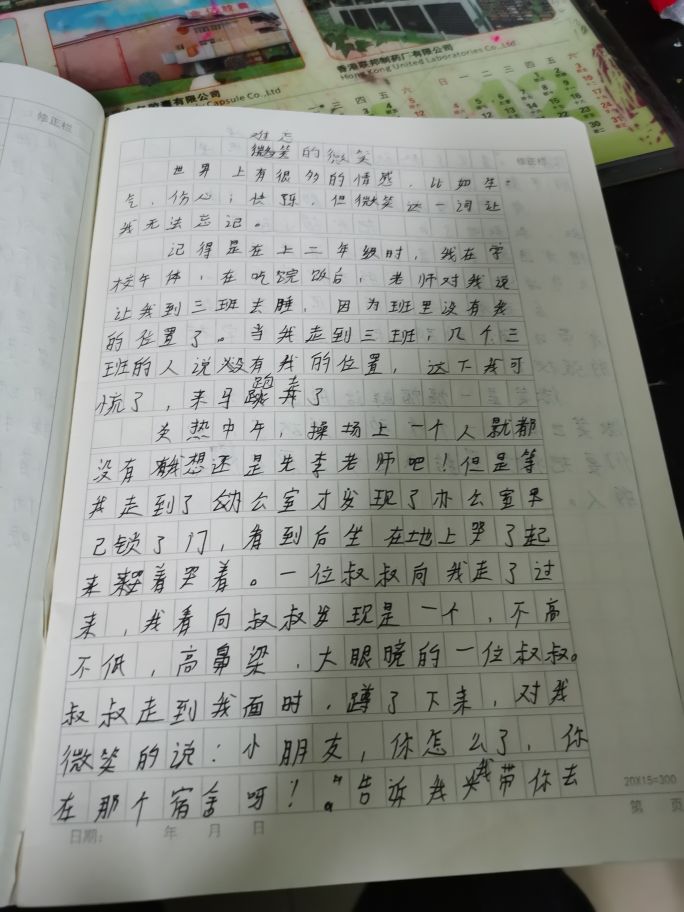 香港联邦制药厂有限公司
Hong Kong United Laboratories Co., Ltd
胶囊有限公司
Capsule Co., Ltd
一 二 三 四 五 六
修正栏
修正栏
难忘
微笑的微笑
世界上有很多的情感，比如生
气，伤心；快乐，但微笑这一词让
我无法忘记。
记得是在上二年级时，我在学
校午休，在吃完饭后，老师对我说
让我到三班去睡，因为班里没有我
的位置了。当我走到三班，几个三
班的人说没有我的位置，这下我可
慌了，来
炎热中午，操场上一个人就都
没有我想还是先李老师吧！但是等
我走到了办公室才发现了办公室早
已锁了门，看到后坐在地上哭了起
来哭着。一位叔叔向我走了过
来，我看向叔叔发现是一个，不高
不低，高鼻梁，大眼睛的一位叔叔。
叔叔走到我面时，蹲了下来，对我
微笑的说：小朋友，你怎么了，你
在那个宿舍呀！"告诉我我带你去
20X15=300
日期： 年 月 日
第 页